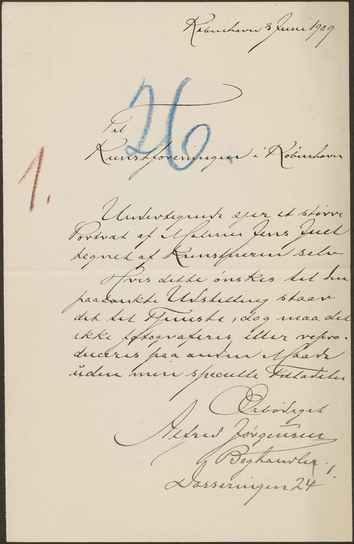 København 3 Juni 1909
26.
Til
Kunstforeningen i København
1.
Undertegnede ejer et større
Portræt af Maleren Jens Juel
tegnet af Kunstneren selv
Hvis dette ønskes til den
paatænkte Udstilling staar
det til Tjeneste, dog maa det
ikke fotograferes eller repro-
duceres paa anden Maade
uden min specielle Tilladelse
Ærbødigst
Alfred Jørgensen
Boghandler
Dosseringen 24